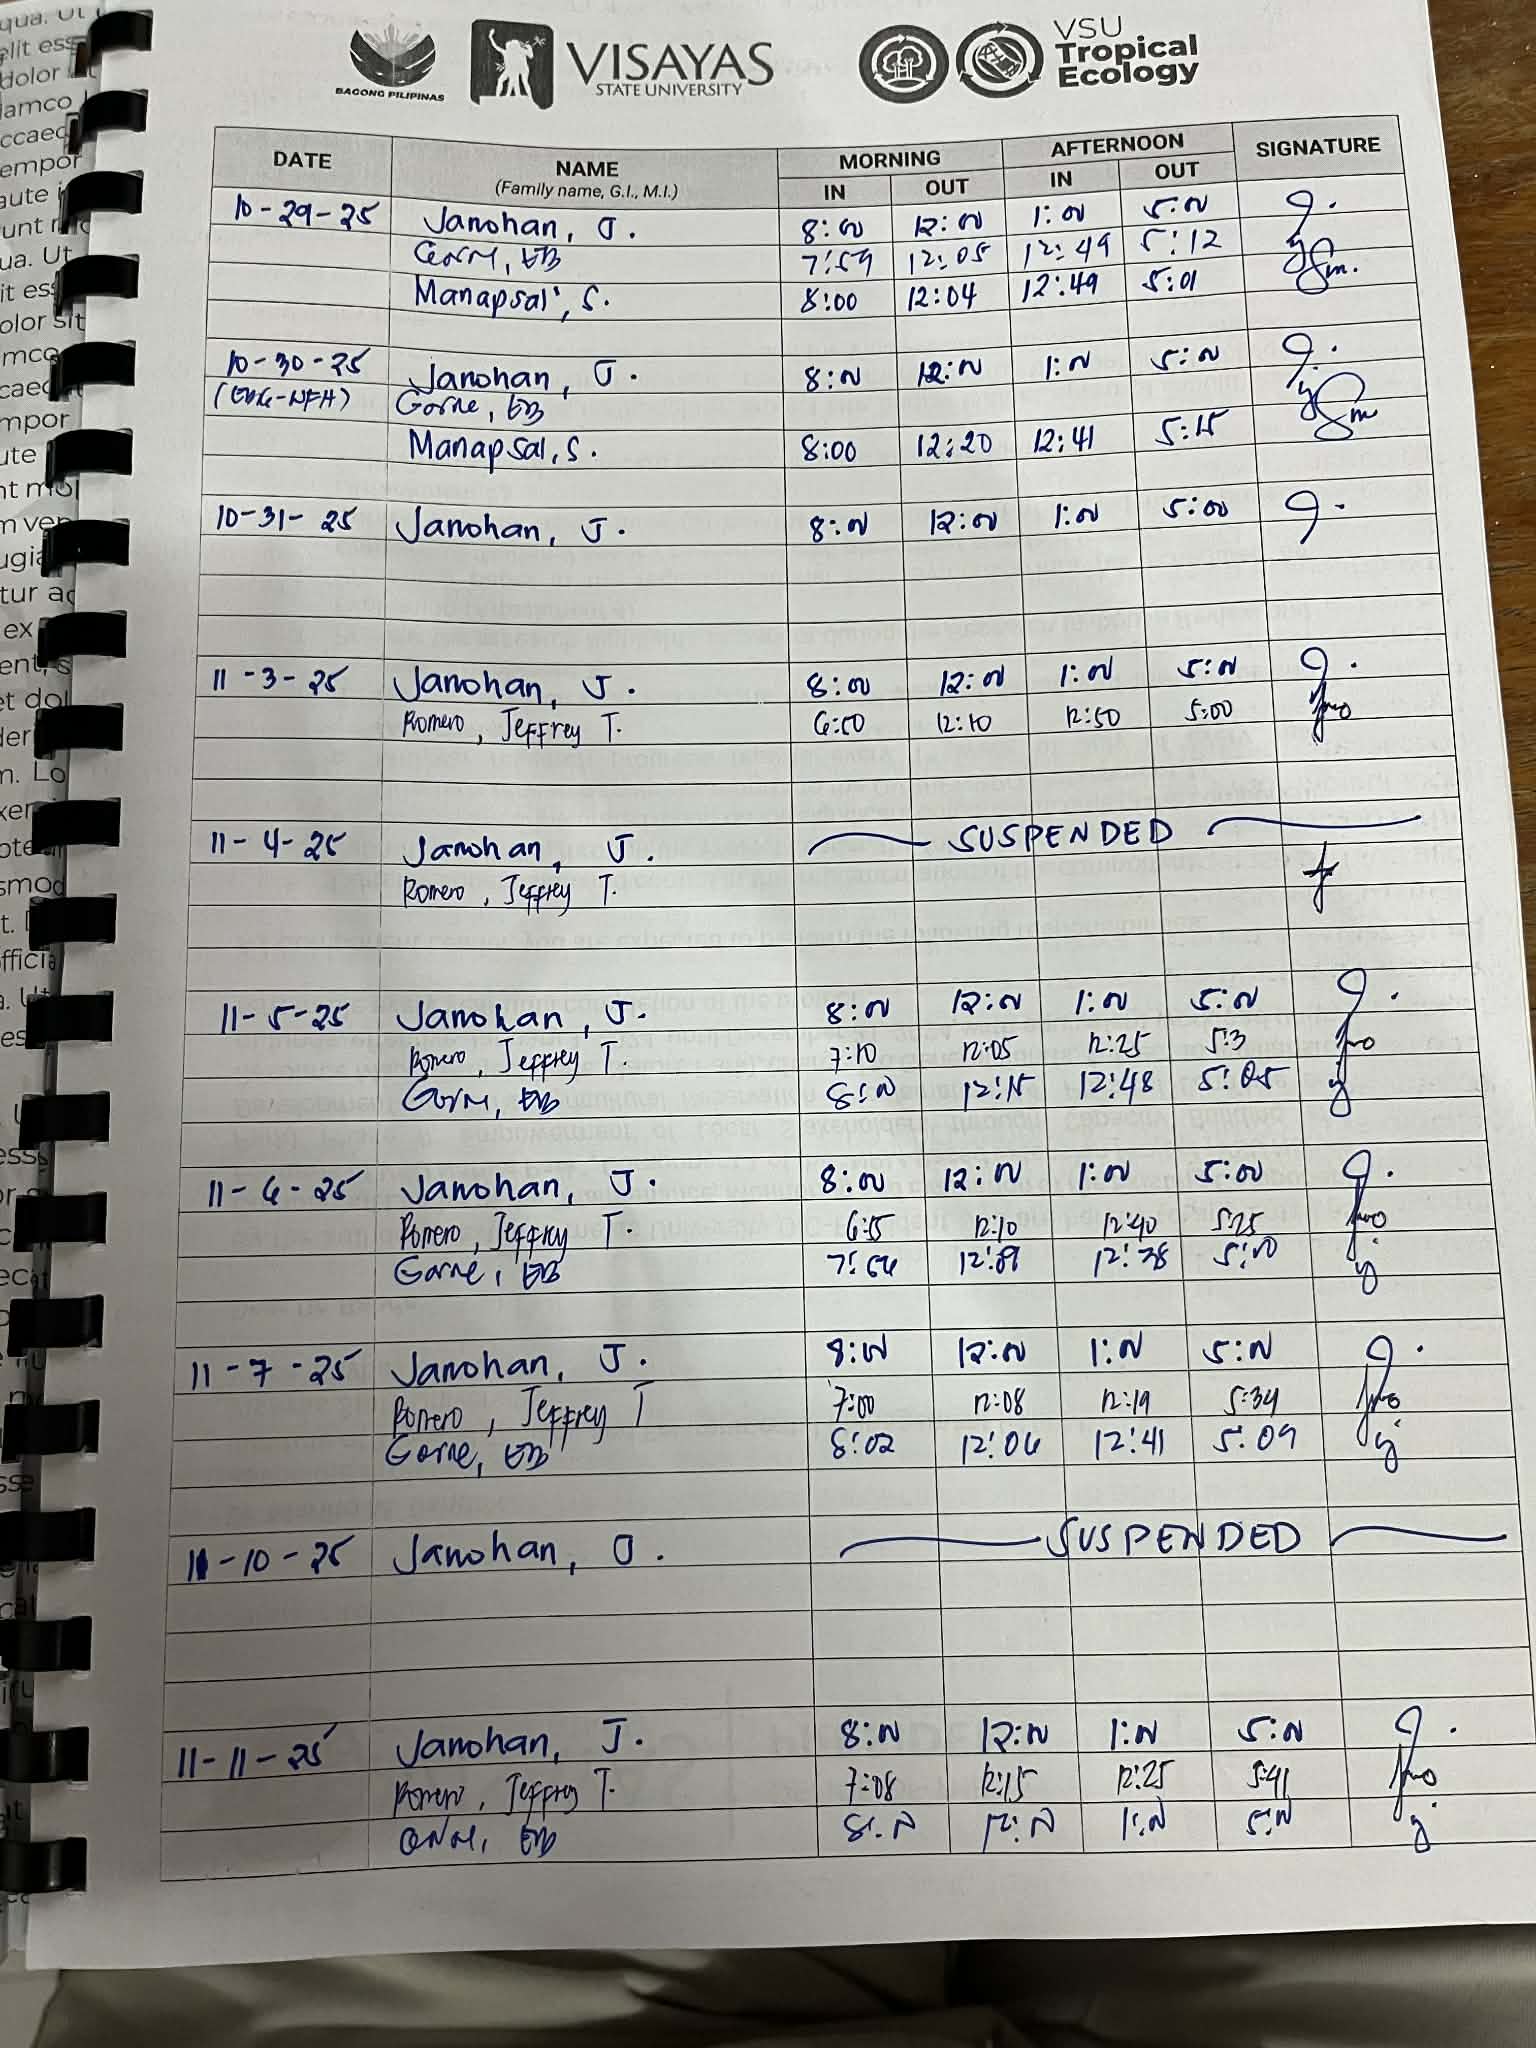 BAGONG PILIPINAS
VISAYAS
STATE UNIVERSITY
VSU
Tropical
Ecology
DATE NAME MORNING AFTERNOON SIGNATURE
(Family name, G.I., M.I.) IN OUT IN OUT
10-29-25 Janohan, J. 8:00 12:00 1:00 5:00
EB 7:59 12:05 12:49 5:12
Manapsal, S. 8:00 12:04 12:49 5:01
10-30-25 Janohan, J. 8:00 12:00 1:00 5:00
Gorne, EB
Manapsal, S. 8:00 12:20 12:41 5:15
10-31-25 Janohan, J. 8:00 12:00 1:00 5:00
11-3-25 Janohan, J. 8:00 12:00 1:00 5:00
Romero, Jeffrey T. 6:50 12:10 12:50 5:00
11-4-25 Janohan, J. SUSPENDED
Romero, Jeffrey T.
11-5-25 Janohan, J. 8:00 12:00 1:00 5:00
Romero, Jeffrey T. 7:10 12:05 12:25 5:3
Gorne, EB 8:00 12:15 12:48 5:05
11-6-25 Janohan, J. 8:00 12:00 1:00 5:00
Romero, Jeffrey T. 6:55 12:10 12:40 5:25
Gorne, EB 7:56 12:09 12:38 5:10
11-7-25 Janohan, J. 8:00 12:00 1:00 5:00
Romero, Jeffrey T 7:00 12:08 12:19 5:34
Gorne, EB 8:02 12:06 12:41 5:09
11-10-25 Janohan, J. SUSPENDED
11-11-25 Janohan, J. 8:00 12:00 1:00 5:00
Romero, Jeffrey T. 7:08 12:15 12:25 5:41
EB 8:00 12:00 1:00 5:00